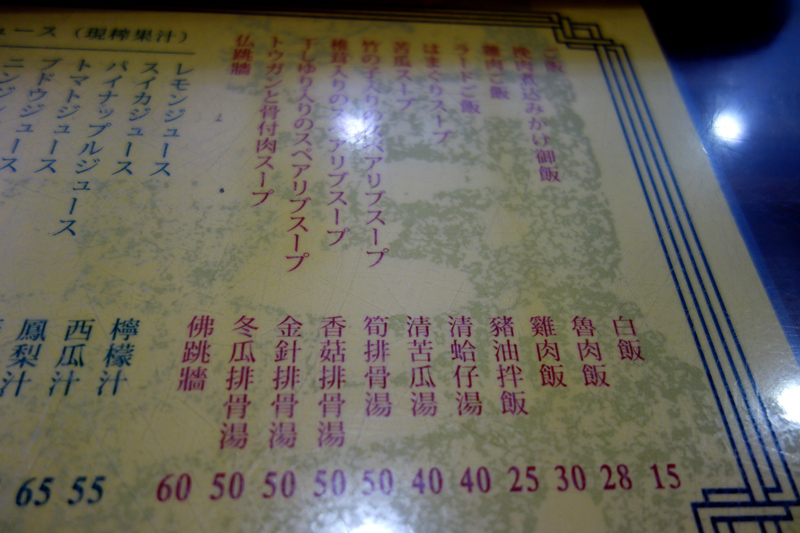 ご飯
挽肉煮込みかけ御飯
雞肉ご飯
ラードご飯
はまぐりスープ
苦瓜スープ
竹の子入りのスペアリブスープ
椎茸入りのスペアリブスープ
丁しゆり入りのスペアリブスープ
トウガンと骨付肉スープ
仏跳牆
ュース（現榨果汁）
レモンジュース
スイカジュース
パイナップルジュース
トマトジュース
ブドウジュース
ニンジンジュース
白飯 15
魯肉飯 28
雞肉飯 30
豬油拌飯 25
清蛤仔湯 40
清苦瓜湯 40
筍排骨湯 50
香菇排骨湯 50
金針排骨湯 50
冬瓜排骨湯 50
佛跳牆 60
檸檬汁 55
西瓜汁 65
鳳梨汁